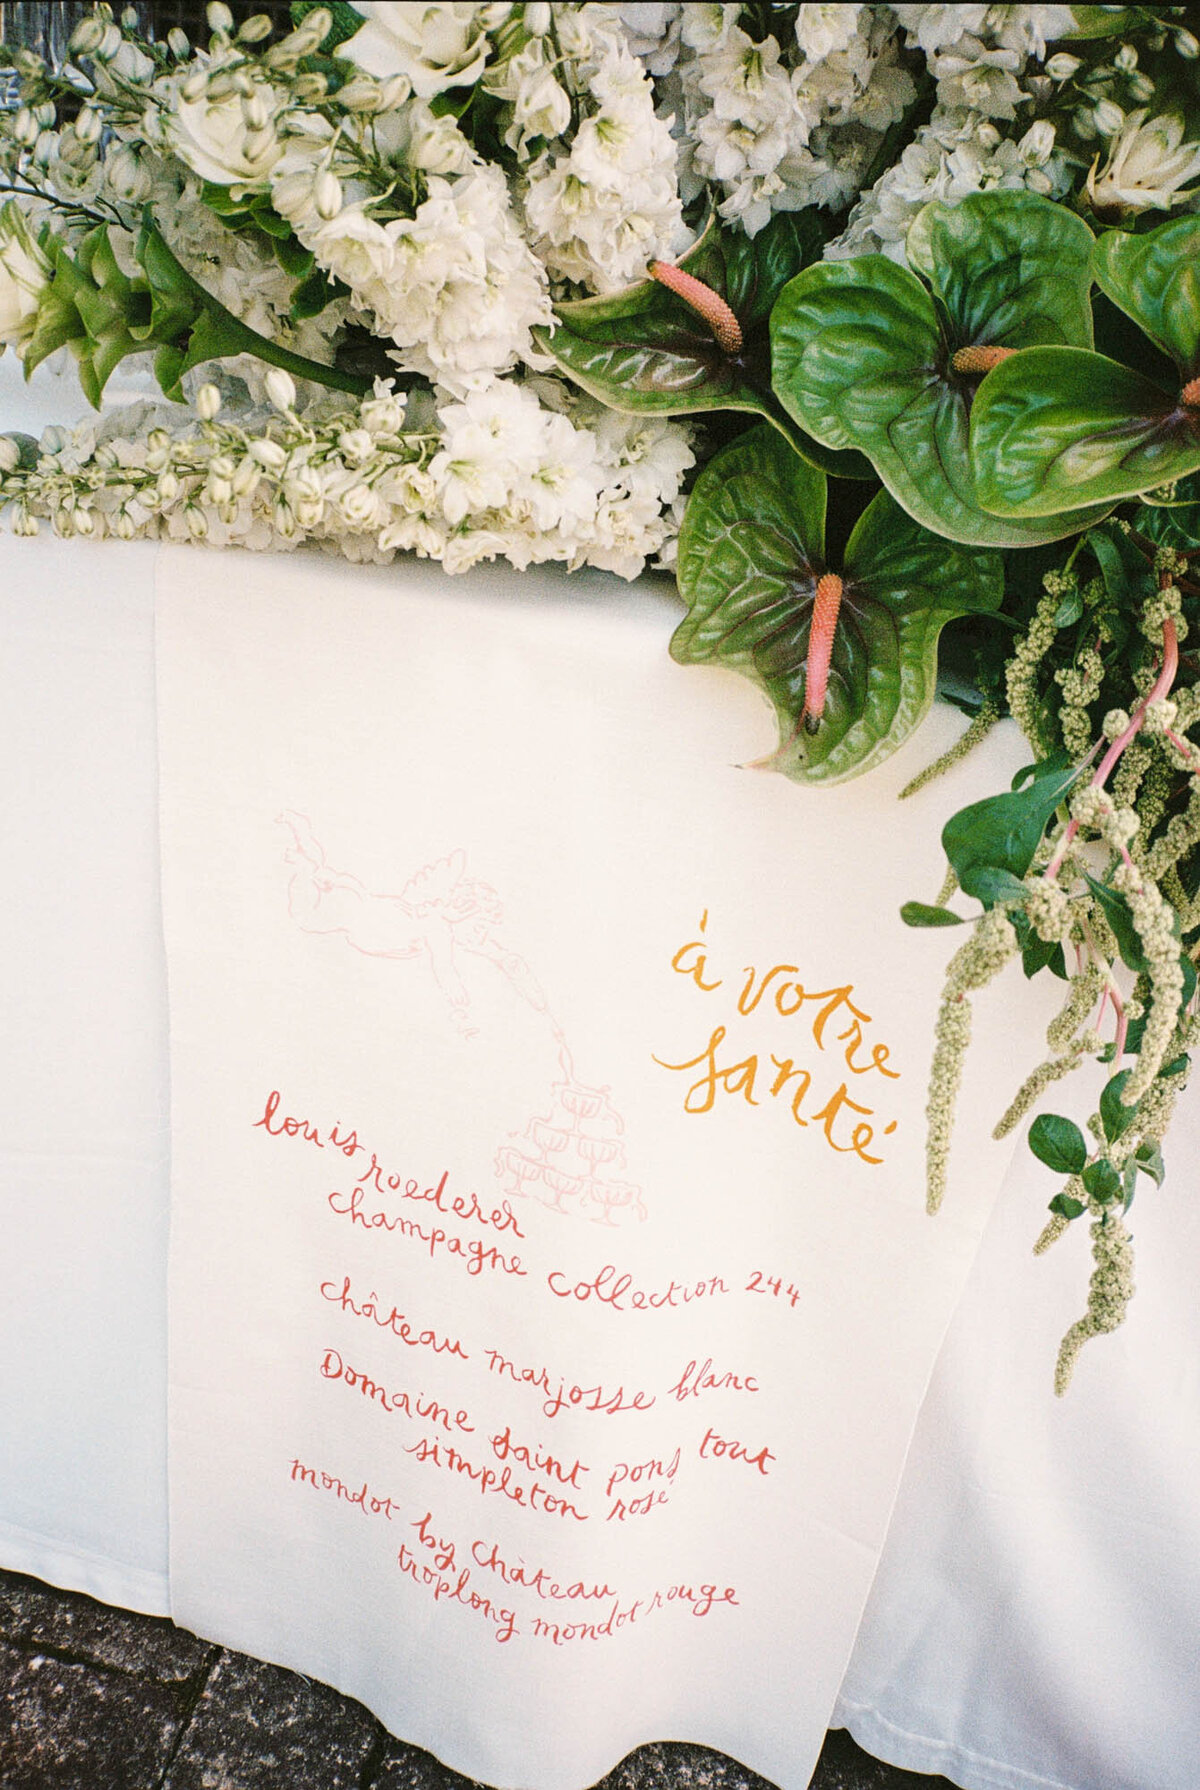 à votre
santé
louis
roederer
champagne collection 244
château marjosse blanc
Domaine saint pons tout
simpleton rosé
mondot by château
troplong mondot rouge